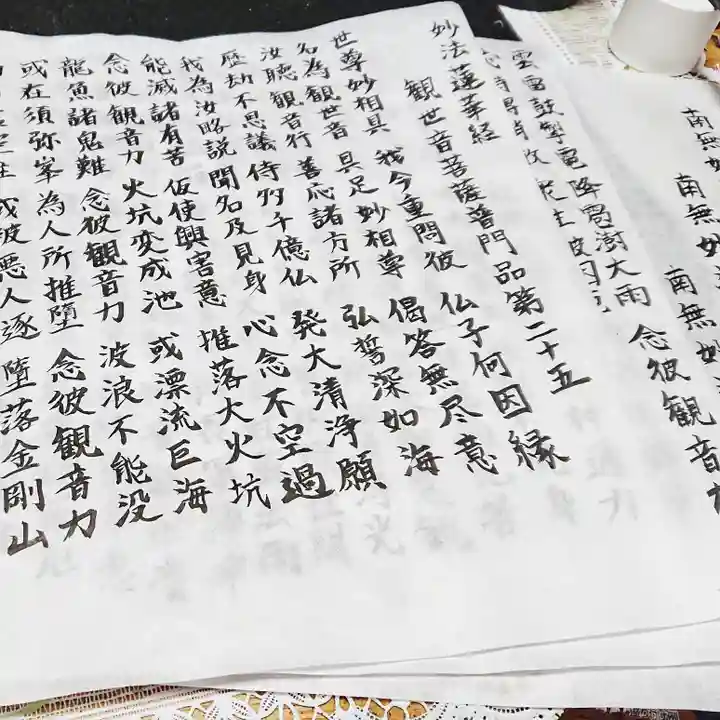 南無妙
南無妙
南無妙
雲雷鼓掣電 降雹澍大雨 念彼観音力
応時得消散 衆生被困厄
妙法蓮華経
観世音菩薩普門品第二十五
世尊妙相具 我今重問彼 仏子何因縁
名為観世音 具足妙相尊 偈答無尽意
汝聴観音行 善応諸方所 弘誓深如海
歴劫不思議 侍多千億仏 発大清浄願
我為汝略説 聞名及見身 心念不空過
能滅諸有苦 仮使興害意 推落大火坑
念彼観音力 火坑変成池 或漂流巨海
龍魚諸鬼難 念彼観音力 波浪不能没
或在須弥峯 為人所推堕 念彼観音力
或被悪人逐 堕落金剛山